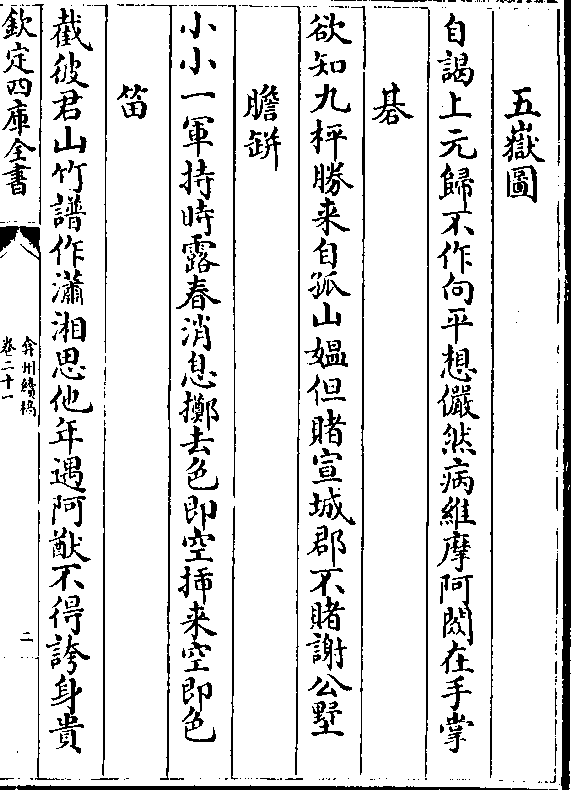 五嶽圖
自謁上元歸不作向平想儼然病維摩阿閦在手掌
碁
欲知九枰勝来自孤山媼但賭宣城郡不賭謝公墅
膽缾
小小一軍持時露春消息擲去色即空揷来空即色
笛
截彼君山竹譜作瀟湘思他年遇阿猷不得誇身貴
欽定四庫全書
弇州續稿
卷二十一
二